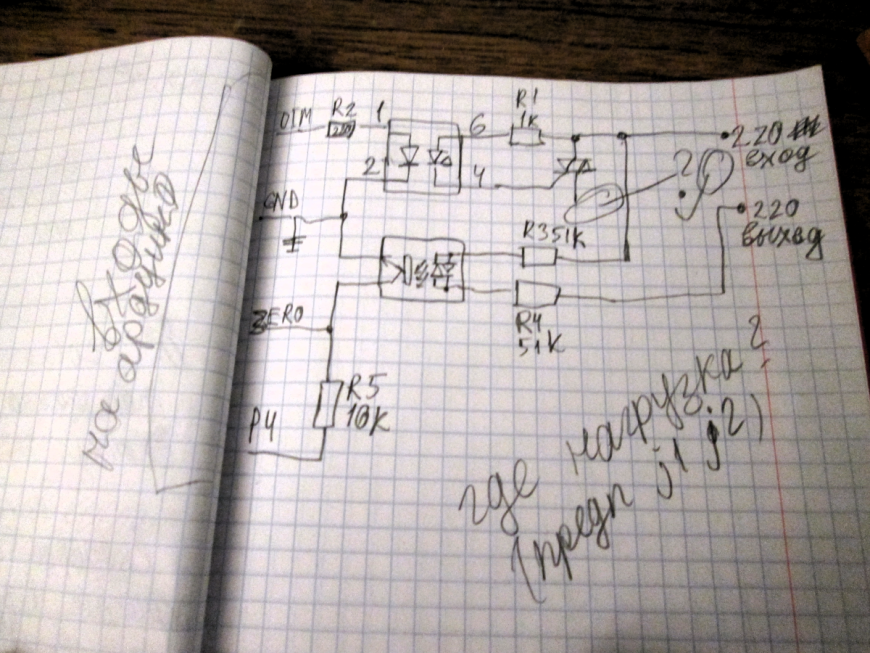 входы
на ардуино
DIM
R2
220
1
2
6
4
R1
1K
220
вход
?
GND
220
выход
R3 51K
ZERO
R4
51K
R5
10K
P4
где нагрузка?
(предп j1 j2)